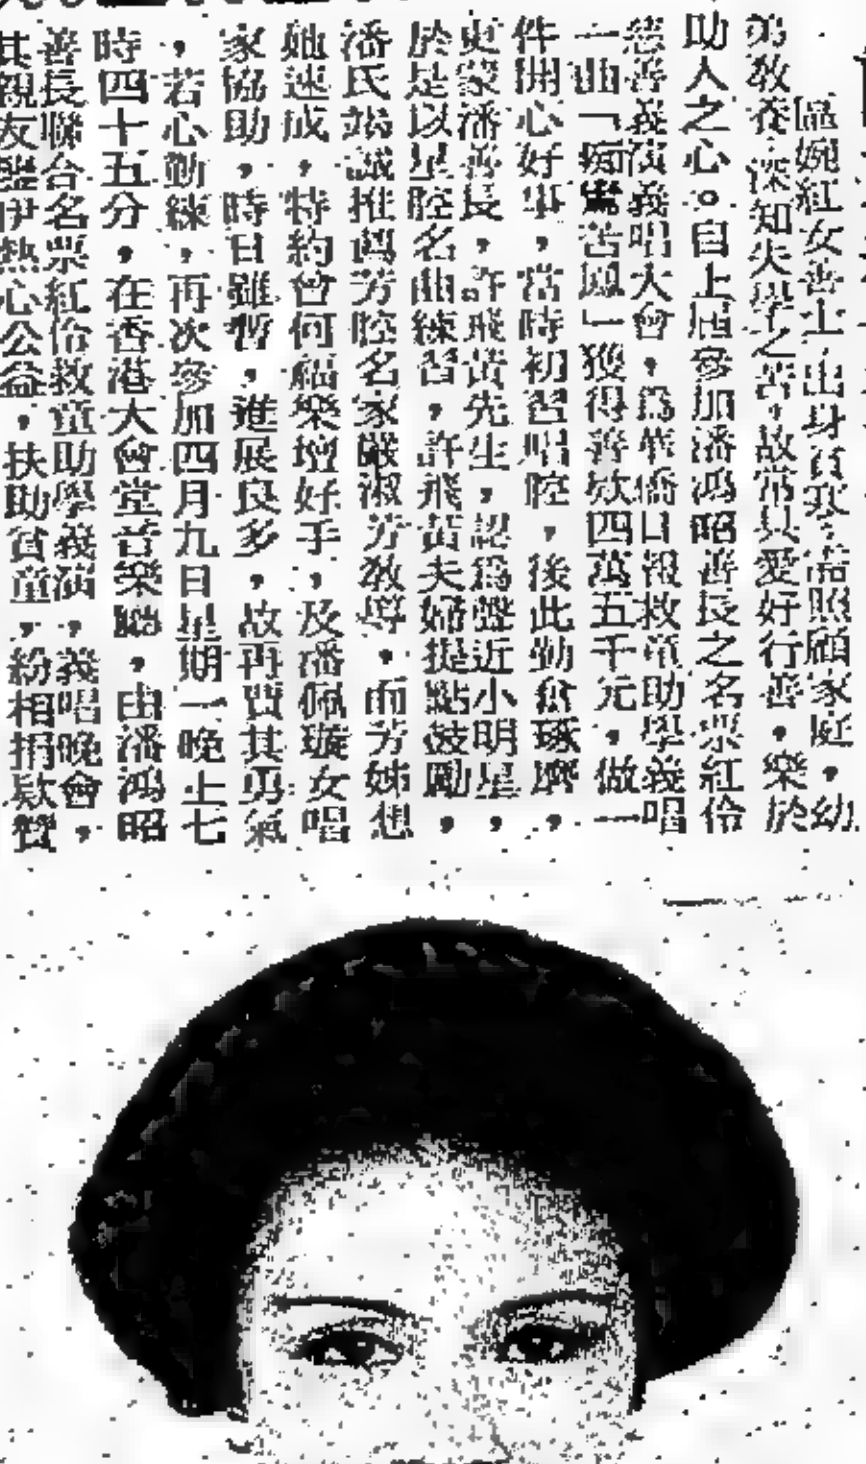 區婉紅女善士出身貧寒，需照顧家庭，幼
弟教養，深知失學之苦，故常具愛好行善，樂於
助人之心。自上屆參加潘鴻昭善長之名票紅伶
慈善義演義唱大會，為華僑日報救童助學義唱
一曲「痴鸞苦鳳」獲得善欵四萬五千元，做一
件開心好事，當時初習唱腔，後此勤奮琢磨，
更蒙潘善長，許飛黃先生，認為聲近小明星，
於是以星腔名曲練習，許飛黃夫婦提點鼓勵，
潘氏竭誠推薦芳腔名家嚴淑芳教導，而芳姊想
她速成，特約曾何福樂壇好手，及潘佩璇女唱
家協助，時日雖暫，進展良多，故再賈其勇氣
，若心勤練，再次參加四月九日星期一晚上七
時四十五分，在香港大會堂音樂廳，由潘鴻昭
善長聯合名票紅伶救童助學義演，義唱晚會，
其親友 伊熱心公益，扶助貧童，紛相捐欵贊